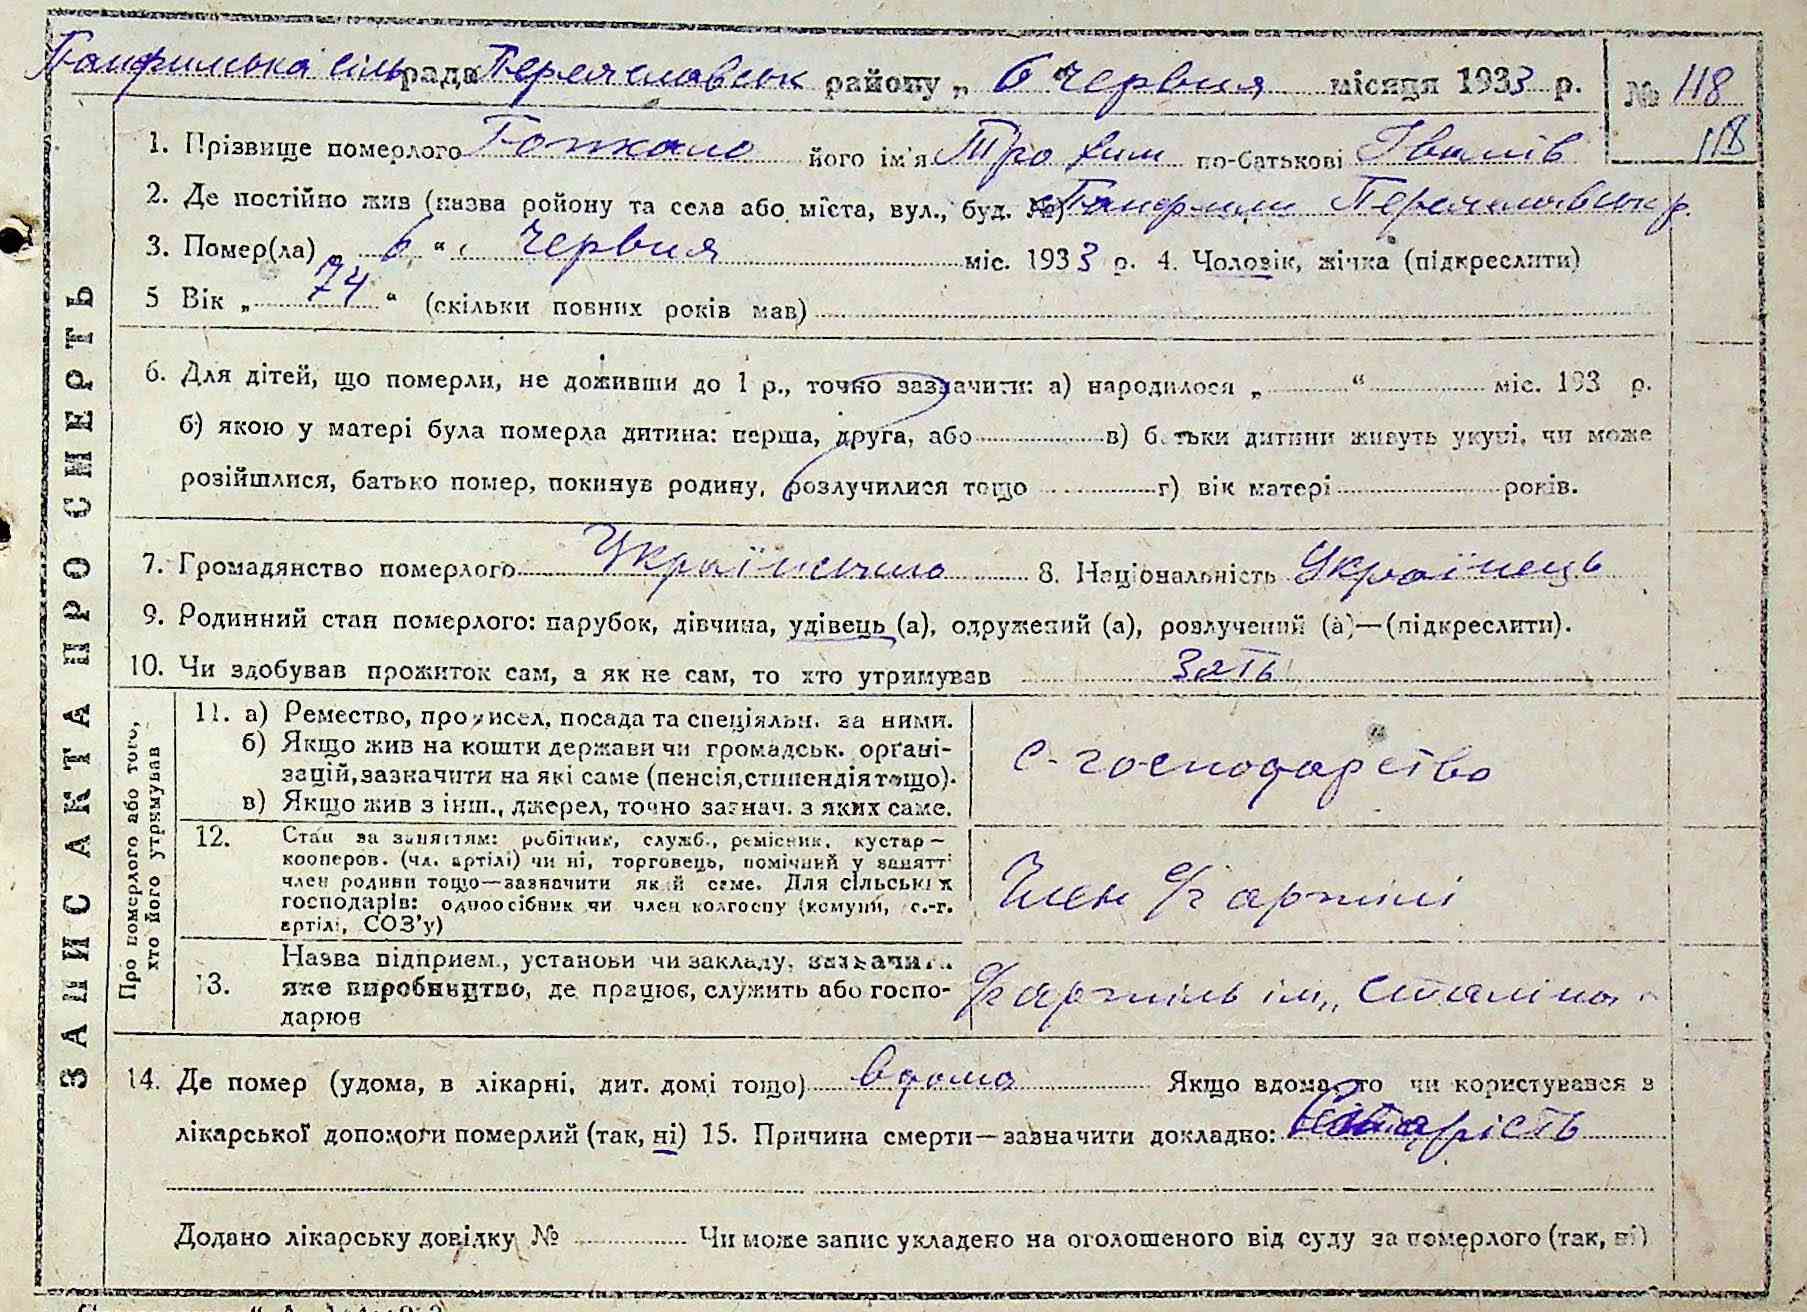 Гайшинська сільрада Переяславськ району „ 6 " червня місяця 1933 р. № 118
118
1. Прізвище померлого його ім'я Трохим по-батькові Іванів
2. Де постійно жив (назва ройону та села або міста, вул., буд. №) Переяславськ р.
3. Помер(ла) „ 6 " червня міс. 1933 р. 4. Чоловік, жінка (підкреслити)
5 Вік „ 74 " (скільки повних років мав)
6. Для дітей, що померли, не доживши до 1 р., точно зазначити: а) народилося „ " міс. 193 р.
б) якою у матері була померла дитина: перша, друга, або в) батьки дитини живуть укупі, чи може
розійшлися, батько помер, покинув родину, розлучилися тощо г) вік матері років.
7. Громадянство померлого 8. Національність Українець
9. Родинний стан померлого: парубок, дівчина, удівець (а), одружений (а), розлучений (а)—(підкреслити).
10. Чи здобував прожиток сам, а як не сам, то хто утримував Зять
ЗАПИС АКТА ПРО СМЕРТЬ
Про померлого або того, хто його утримував
11. а) Ремество, промисел, посада та спеціяльн. за ними.
б) Якщо жив на кошти держави чи громадськ. органі-
зацій, зазначити на які саме (пенсія, стипендія тощо).
в) Якщо жив з інш., джерел, точно зазнач. з яких саме.
с-господарство
12. Стан за заняттям: робітник, служб., ремісник, кустар—
кооперов. (чл. артілі) чи ні, торговець, помічний у занятті
член родини тощо—зазначити який саме. Для сільських
господарів: одноосібник чи член колгоспу (комуни, с.-г.
артілі, СОЗ'у)
Член с/г артілі
13. Назва підприєм., установи чи закладу, зазначити
яке виробництво, де працює, служить або госпо-
дарює
с/г артіль ім „Сталіна"
14. Де помер (удома, в лікарні, дит. домі тощо) вдома Якщо вдома, то чи користувався з
лікарської допомоги померлий (так, ні) 15. Причина смерти—зазначити докладно: Старість
Додано лікарську довідку № Чи може запис укладено на оголошеного від суду за померлого (так, ні)